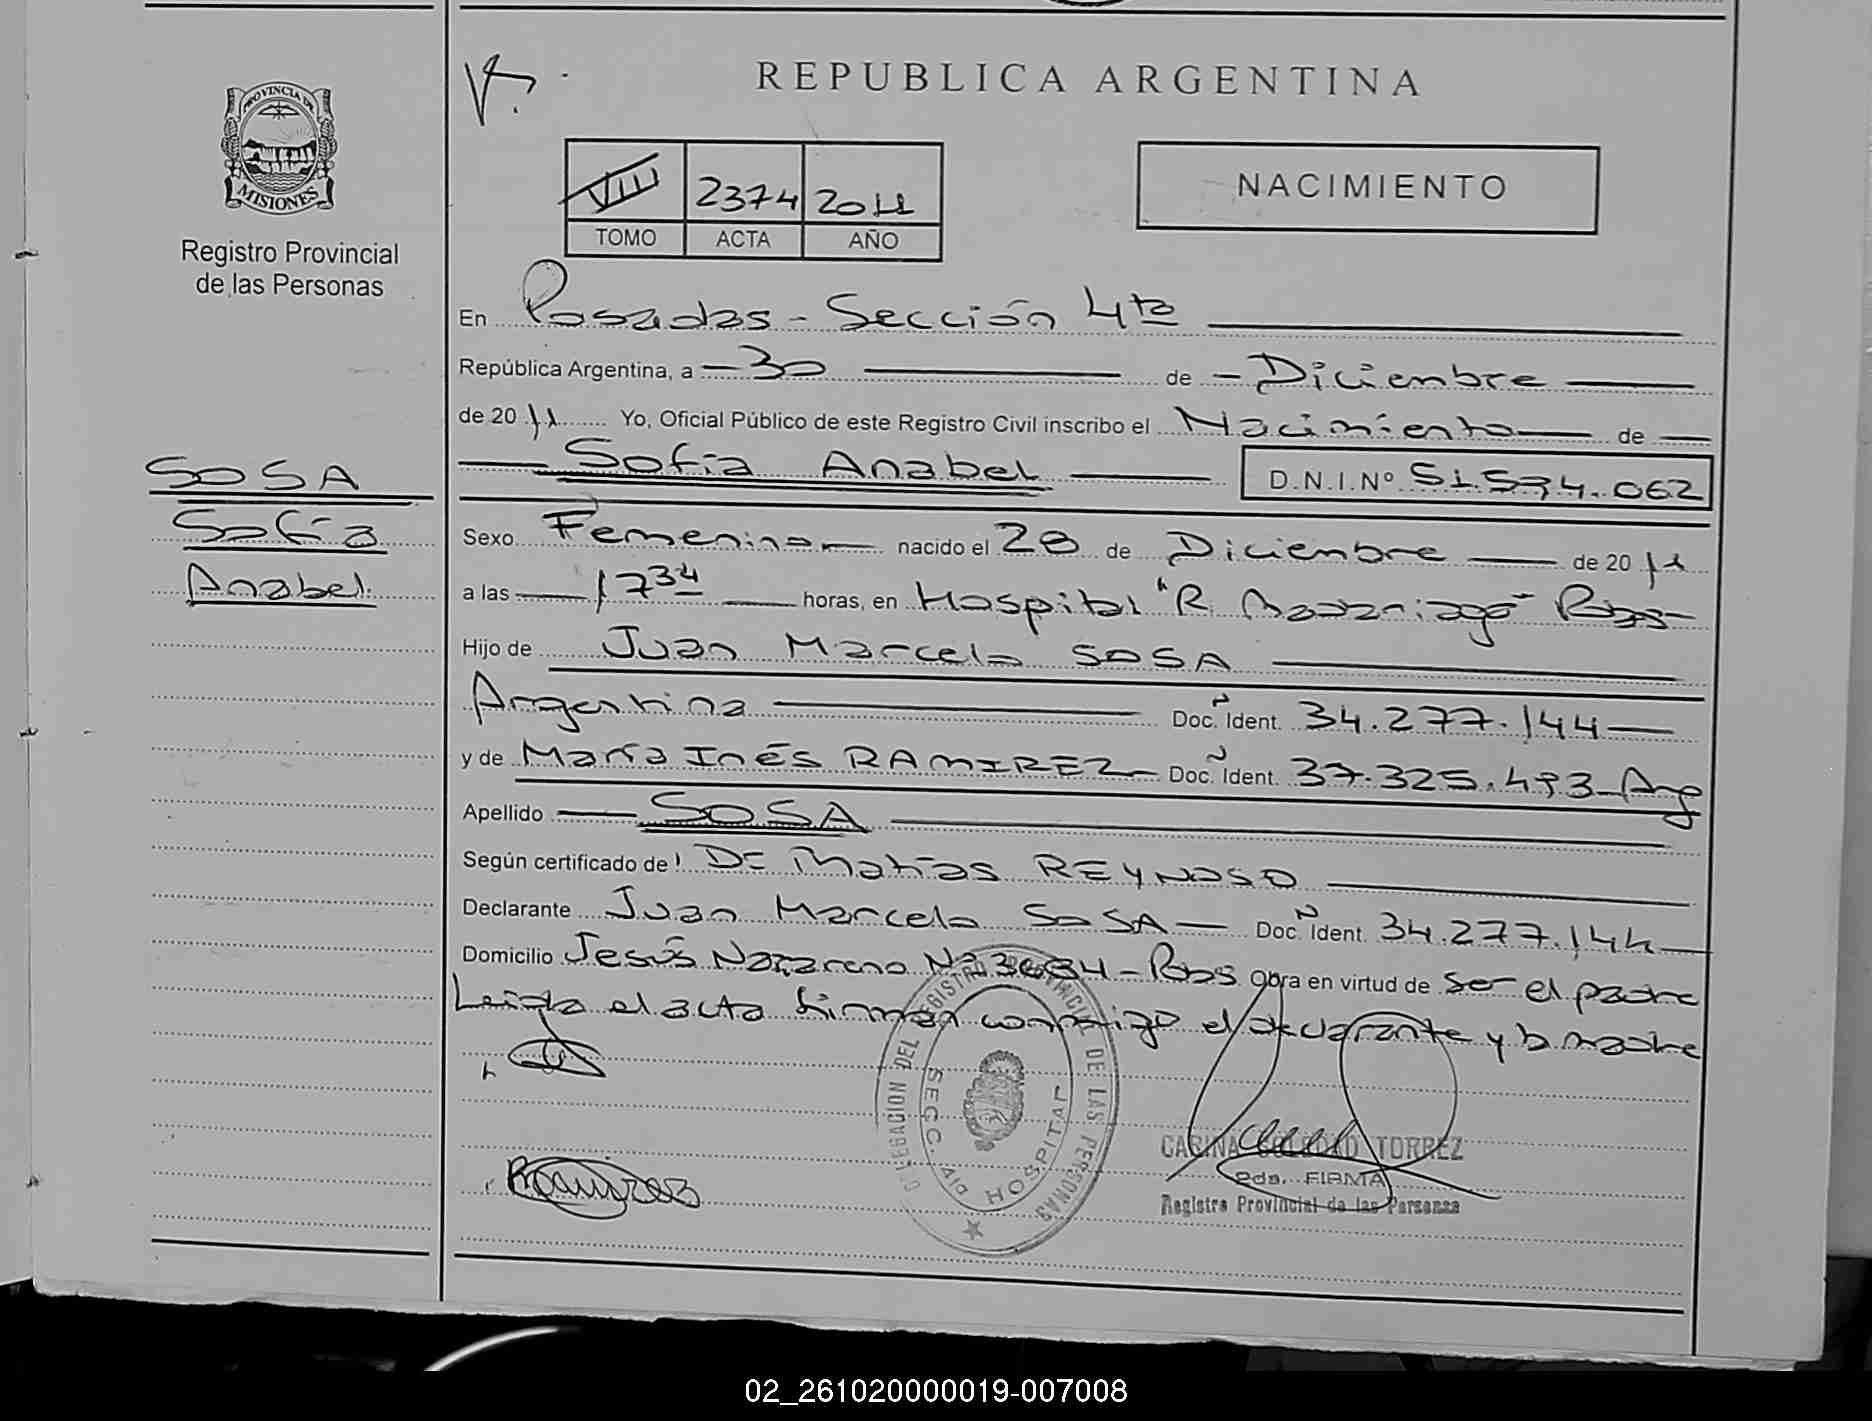 REPUBLICA ARGENTINA
PROVINCIA DE MISIONES
Registro Provincial
de las Personas
VIII 2374 2011
TOMO ACTA AÑO
NACIMIENTO
En Posadas - Sección 4ta
República Argentina, a - 30 de - Diciembre
de 2011 Yo, Oficial Público de este Registro Civil inscribo el Nacimiento de
Sofía Anabel D.N.I.Nº 51.534.062
SOSA
Sofía
Anabel.
Sexo Femenino nacido el 28 de Diciembre de 2011
a las 17 34 horas, en Hospital "R. Madariaga" Pdas-
Hijo de Juan Marcelo SOSA
Argentina Doc. Ident. 34.277.144
y de María Inés RAMIREZ Doc. Ident. 37.325.493 Arg
Apellido SOSA
Según certificado de Dr Matías REYNOSO
Declarante Juan Marcelo SOSA Doc. Ident. 34.277.144
Domicilio Jesús Nazareno Nº - Pdas Obra en virtud de ser el padre
Leida el acta firman conmigo el declarante y la madre
DELEGACION DEL REGISTRO PROVINCIAL DE LAS PERSONAS
SECC. 4ta HOSPITAL
Ramirez
CARINA SOLEDAD TORREZ
FIRMA
Registro Provincial de las Personas
02_261020000019-007008